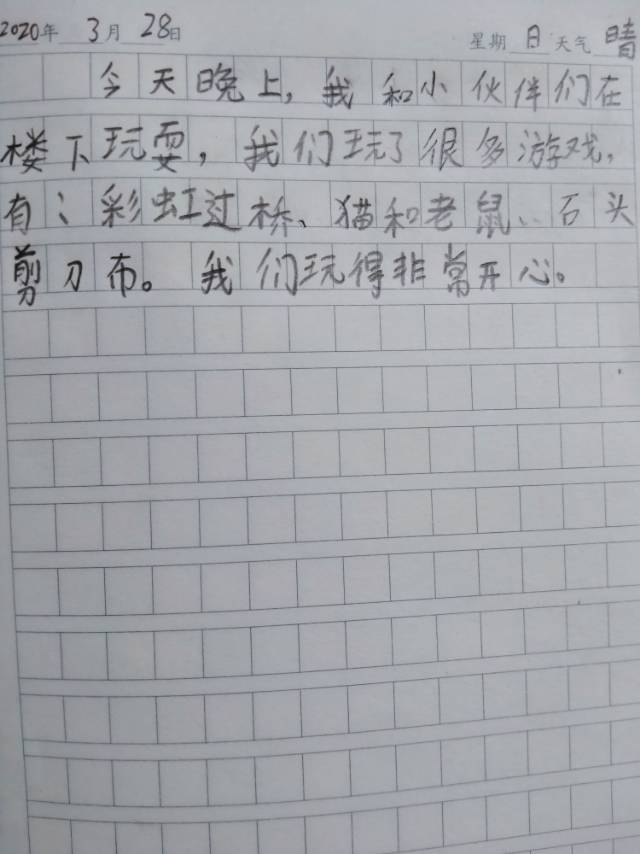 2020年 3月 28日 星期 日 天气 晴
今天晚上，我和小伙伴们在
楼下玩耍，我们玩了很多游戏，
有：彩虹过桥、猫和老鼠、石头
剪刀布。我们玩得非常开心。